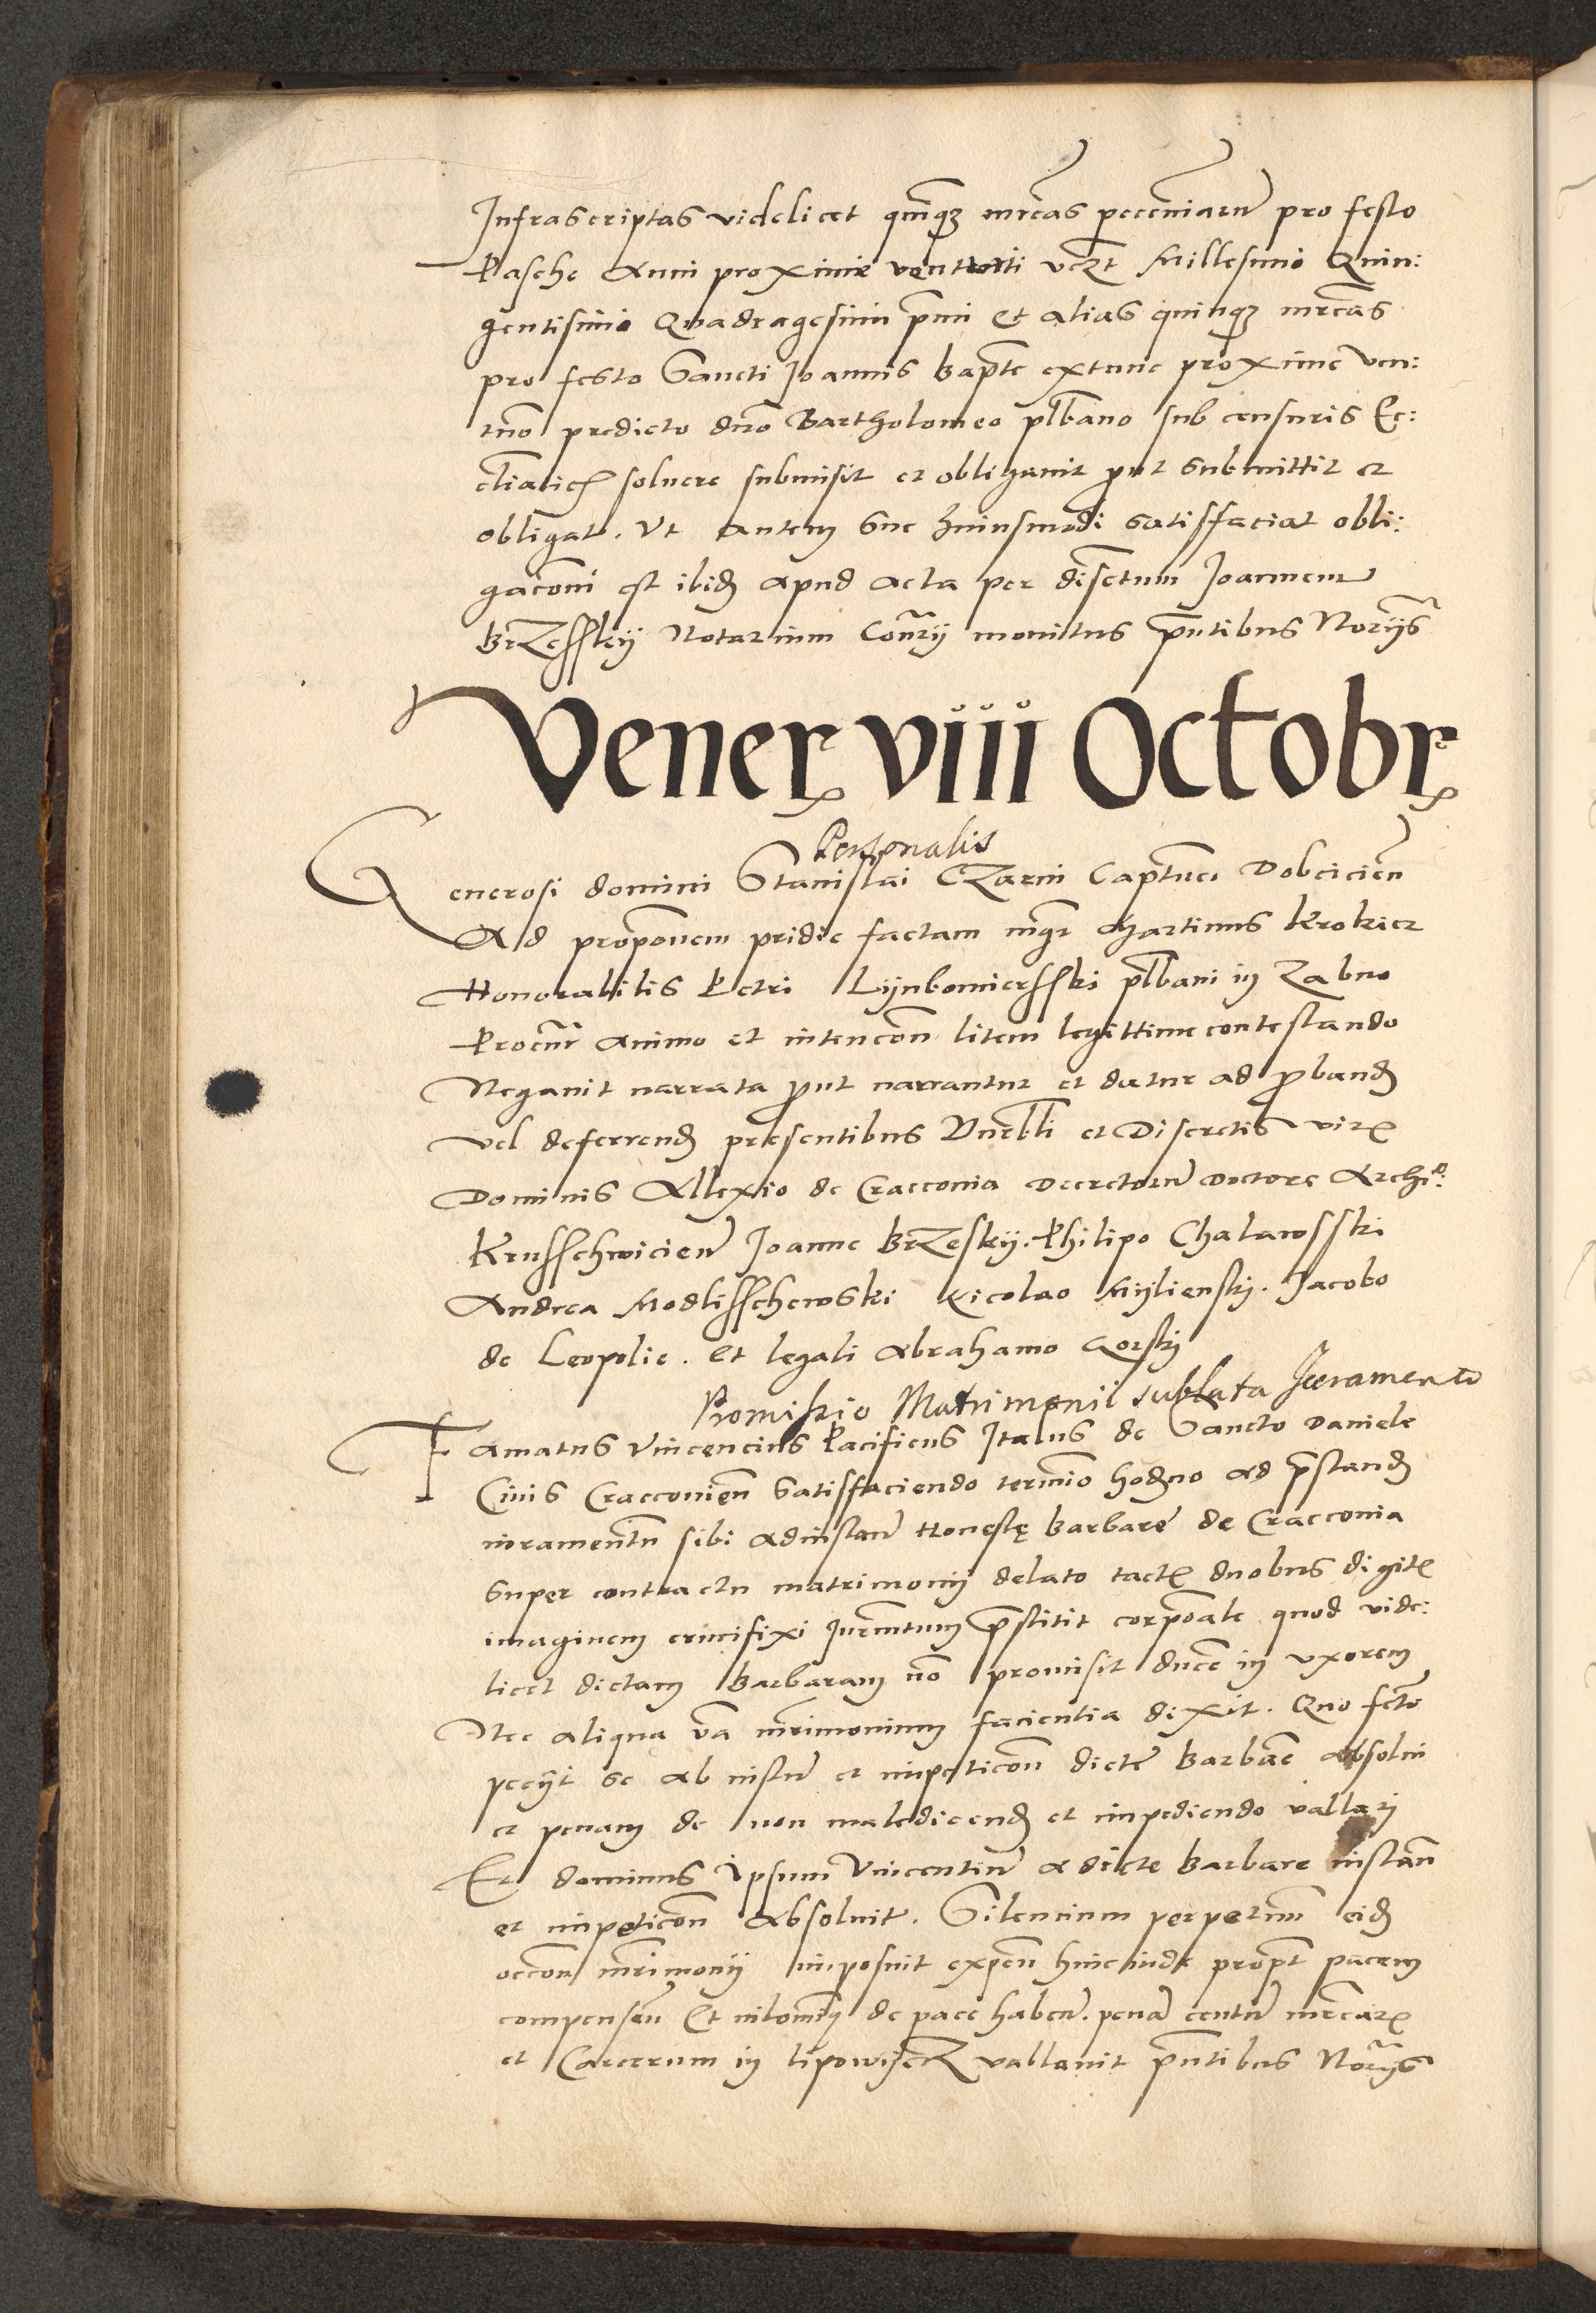 Infrascriptas videlicet quinqz mrcas pecuniarum pro festo
Pasche Anni proxime venturi vczt Millesimo Quin:
gentisimo Quadragesimi pmi Et alias quinqz mrcas
pro festo Sancti Joannis bapte extunc proxime ven:
turo predicto dno Bartholomeo plbano sub censuris Ec:
cliasticis soluere submisit et obligauit put submittit et
obligat. Vt Autem sue huiusmodi satisffaciat obli:
gacioni est ibidem apud acta per discretum Joannem
BrZesskij Notarium Consrij monitus pntibus Norijs
Vener viii Octobr
Personalis
Generosi domini Stanislai CZarni Captnei Dobcicien
Ad proponem pridie factam mgr Martinus krokier
Honorabilis Petri Lijubomiersski plbani in Zabno
Procur animo et intencon litem legittime contestando
Negauit narrata put narrantur et datur ad pband
vel deferrend presentibus Vnerbli et Discretis viris
Dominis Allexio de Cracouia Decretorum Doctore Archi:
Krusschwicien Joanne BrZeskij. Philipo Chalawsski
Andrea Modlisschewski Nicolao Mijliensky. Jacobo
de Leopolie. Et legali Abrahamo Gorskj
Promissio Matrimonii sublata Juramento
Famatus Vincencius Pacificus Italus de Sancto Daniele
Ciuis Cracouien Satisffaciendo termino hodierno ad pstand
iuramentum sibi adinstan Honestę Barbare de Cracouia
super contractu matrimonij delato tactis duobus digitis
imaginem crucifixi Juramtum pstitit corporale quod vide:
licet dictam Barbaram no promisit ducere in vxorem
Nec aliqua verba mrimonium facientia dixit. Quo facto
peciit se ab instan et impeticon dicte Barbare absolui
et penam de non maledicend et impediendo vallari
Et dominus ipsum Vincentium a dicte Barbare instan
et impeticon absoluit. Silencium perpetuum eidem
occon mrimonij imposuit expen hincinde propt pacem
compensan Et nilominus de pace haben. pena centum mrcarum
et Carcerum in lipowijecZ vallauit pntibus Norijs